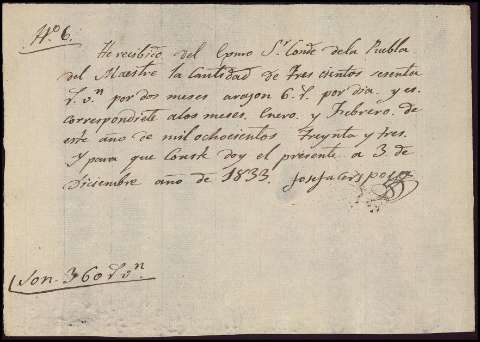 Nº 6.
He recibido del Exmo Sr. Conde de la Puebla
del Maestre la Cantidad de tres cientos sesenta
r. vn por dos meses arazon 6. r. por dia. y es.
correspondiete alos meses, Enero, y Frebrero, de
este año de mil ochocientos Treynta y tres.
Y para que Conste doy el presente a 3 de
Diciembre año de 1833. Josefa Crespo
Son. 360 r. vn.